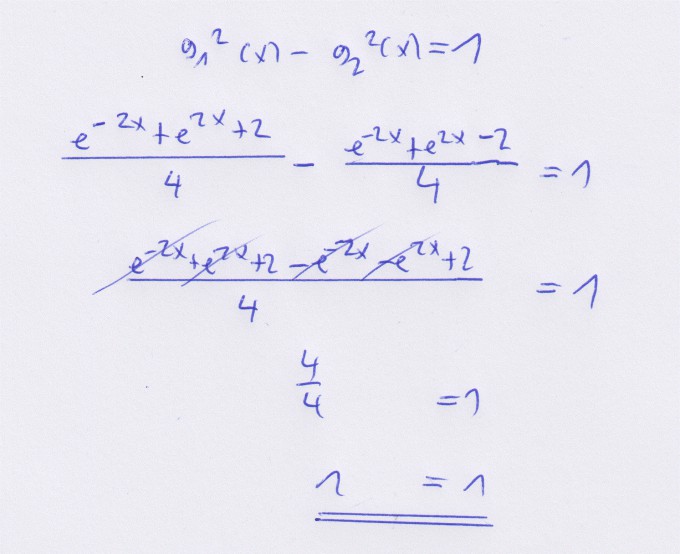 g₁²(x) - g₂²(x) = 1
(e^(-2x) + e^(2x) + 2)/4 - (e^(-2x) + e^(2x) - 2)/4 = 1
(e^(-2x) + e^(2x) + 2 - e^(-2x) - e^(2x) + 2)/4 = 1
4/4 = 1
1 = 1